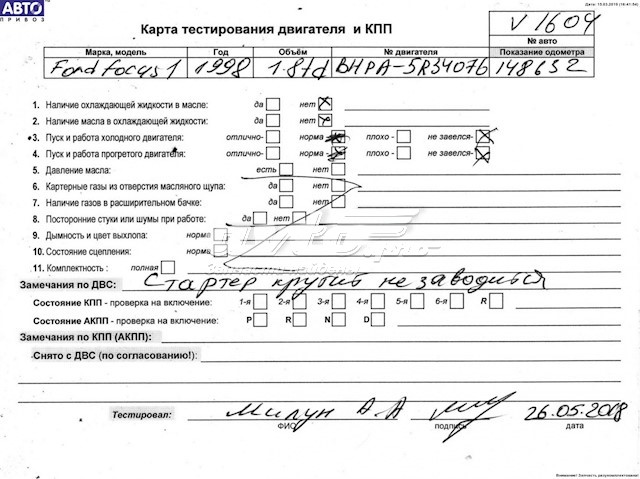 АВТО
ПРИВОЗ
Дата: 15.03.2019 (16:41:54)
Карта тестирования двигателя и КПП
V 1609
№ авто
Марка, модель Год Объём № двигателя Показание одометра
Ford Focus 1 1998 1.8td BHPA-5R34076 148632
1. Наличие охлаждающей жидкости в масле: да нет
2. Наличие масла в охлаждающей жидкости: да нет
3. Пуск и работа холодного двигателя: отлично- норма- плохо - не завелся-
4. Пуск и работа прогретого двигателя: отлично- норма - плохо - не завелся-
5. Давление масла: есть нет
6. Картерные газы из отверстия масляного щупа: да нет
7. Наличие газов в расширительном бачке: да нет
8. Посторонние стуки или шумы при работе: да нет
9. Дымность и цвет выхлопа: норма
10. Состояние сцепления: норма
11. Комплектность : полная
Замечания по ДВС: Стартер крутит не заводится
Состояние КПП - проверка на включение: 1-я 2-я 3-я 4-я 5-я 6-я R
Состояние АКПП - проверка на включение: P R N D
Замечания по КПП (АКПП):
Снято с ДВС (по согласованию!):
Тестировал: Милун А.А 26.05.2018
ФИО подпись дата